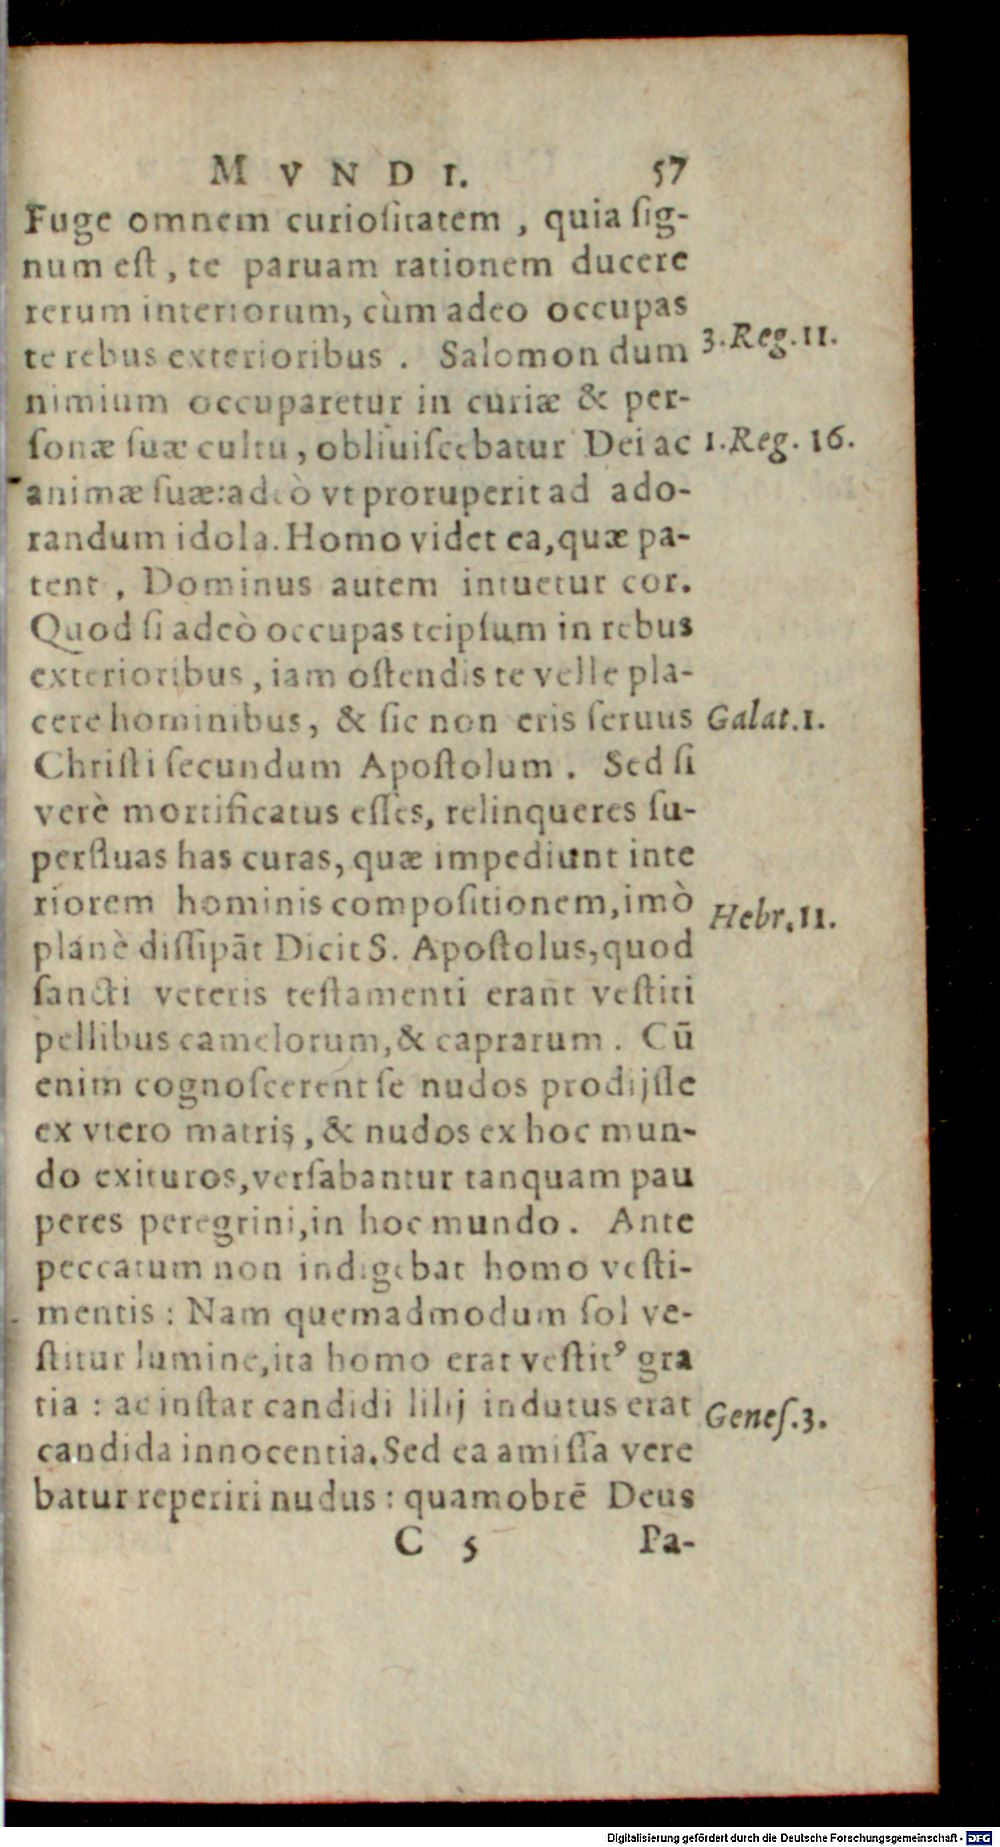 MVNDI. 57
Fuge omnem curioſitatem , quia ſig-
num eſt , te paruam rationem ducere
rerum interiorum, cùm adeo occupas
te rebus exterioribus . Salomon dum
3. Reg. 11.
nimium occuparetur in curiæ & per-
ſonæ ſuæ cultu, obliuiſcebatur Dei ac
1. Reg. 16.
animæ ſuæ: adeò vt proruperit ad ado-
randum idola. Homo videt ea, quæ pa-
tent , Dominus autem intuetur cor.
Quod ſi adeò occupas teipſum in rebus
exterioribus , iam oſtendis te velle pla-
cere hominibus, & ſic non eris ſeruus
Galat. 1.
Chriſti ſecundum Apoſtolum . Sed ſi
verè mortificatus eſſes, relinqueres ſu-
perfluas has curas, quæ impediunt inte
riorem hominis compoſitionem, imò
Hebr. 11.
planè diſſipāt Dicit S. Apoſtolus, quod
ſancti veteris teſtamenti erant veſtiti
pellibus camelorum, & caprarum . Cū
enim cognoſcerent ſe nudos prodijſſe
ex vtero matris, & nudos ex hoc mun-
do exituros, verſabantur tanquam pau
peres peregrini, in hoc mundo . Ante
peccatum non indigebat homo veſti-
mentis : Nam quemadmodum ſol ve-
ſtitur lumine, ita homo erat veſtitꝰ gra
tia : ac inſtar candidi lilij indutus erat
Geneſ. 3.
candida innocentia. Sed ea amiſſa vere
batur reperiri nudus : quamobrē Deus
C 5 Pa-
Digitalisierung gefördert durch die Deutsche Forschungsgemeinschaft - DFG